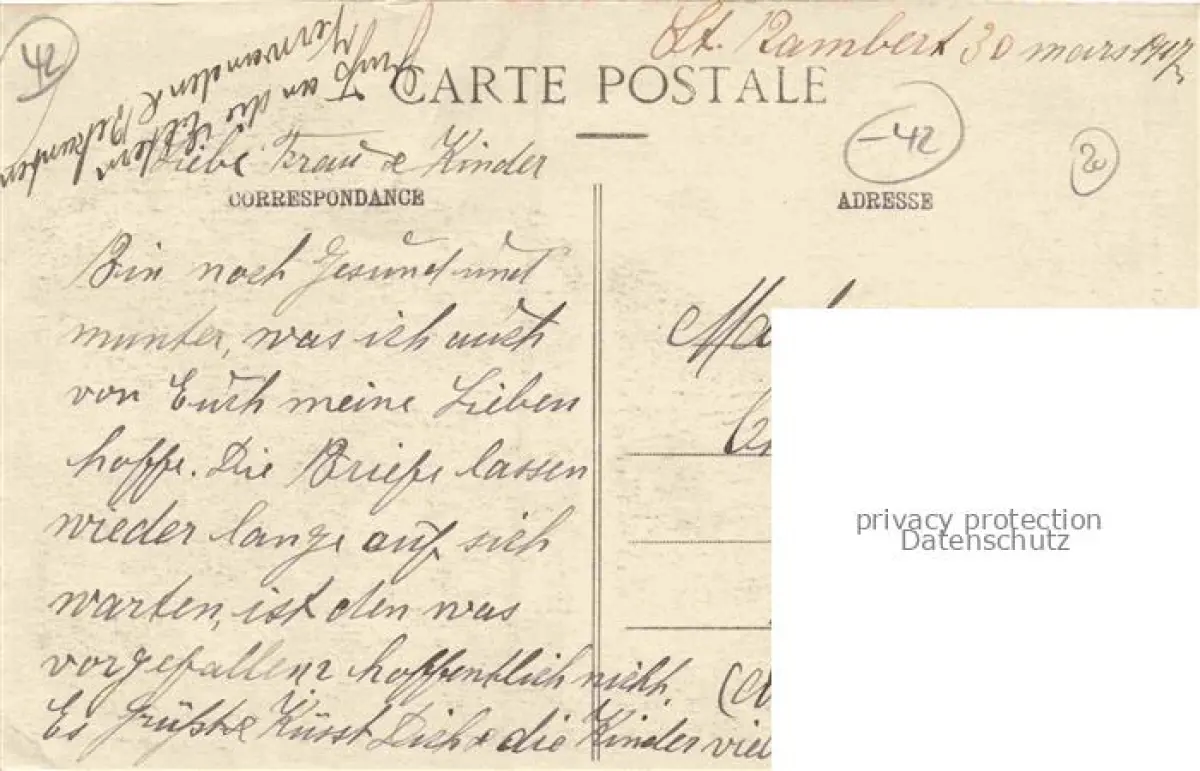 St. Rambert 30 mars 1917
42
Gruß an die Eltern
Verwanden & Bekannten
CARTE POSTALE
-42
20
Liebe Frau & Kinder
CORRESPONDANCE
ADRESSE
Bin noch Gesund und
munter, was ich auch
von Euch meine Lieben
hoffe. Die Briefe lassen
wieder lange auf sich
warten, ist den was
vorgefallen? hoffentlich nicht.
Es grüßt & Küsst Dich & die Kinder viel
privacy protection
Datenschutz